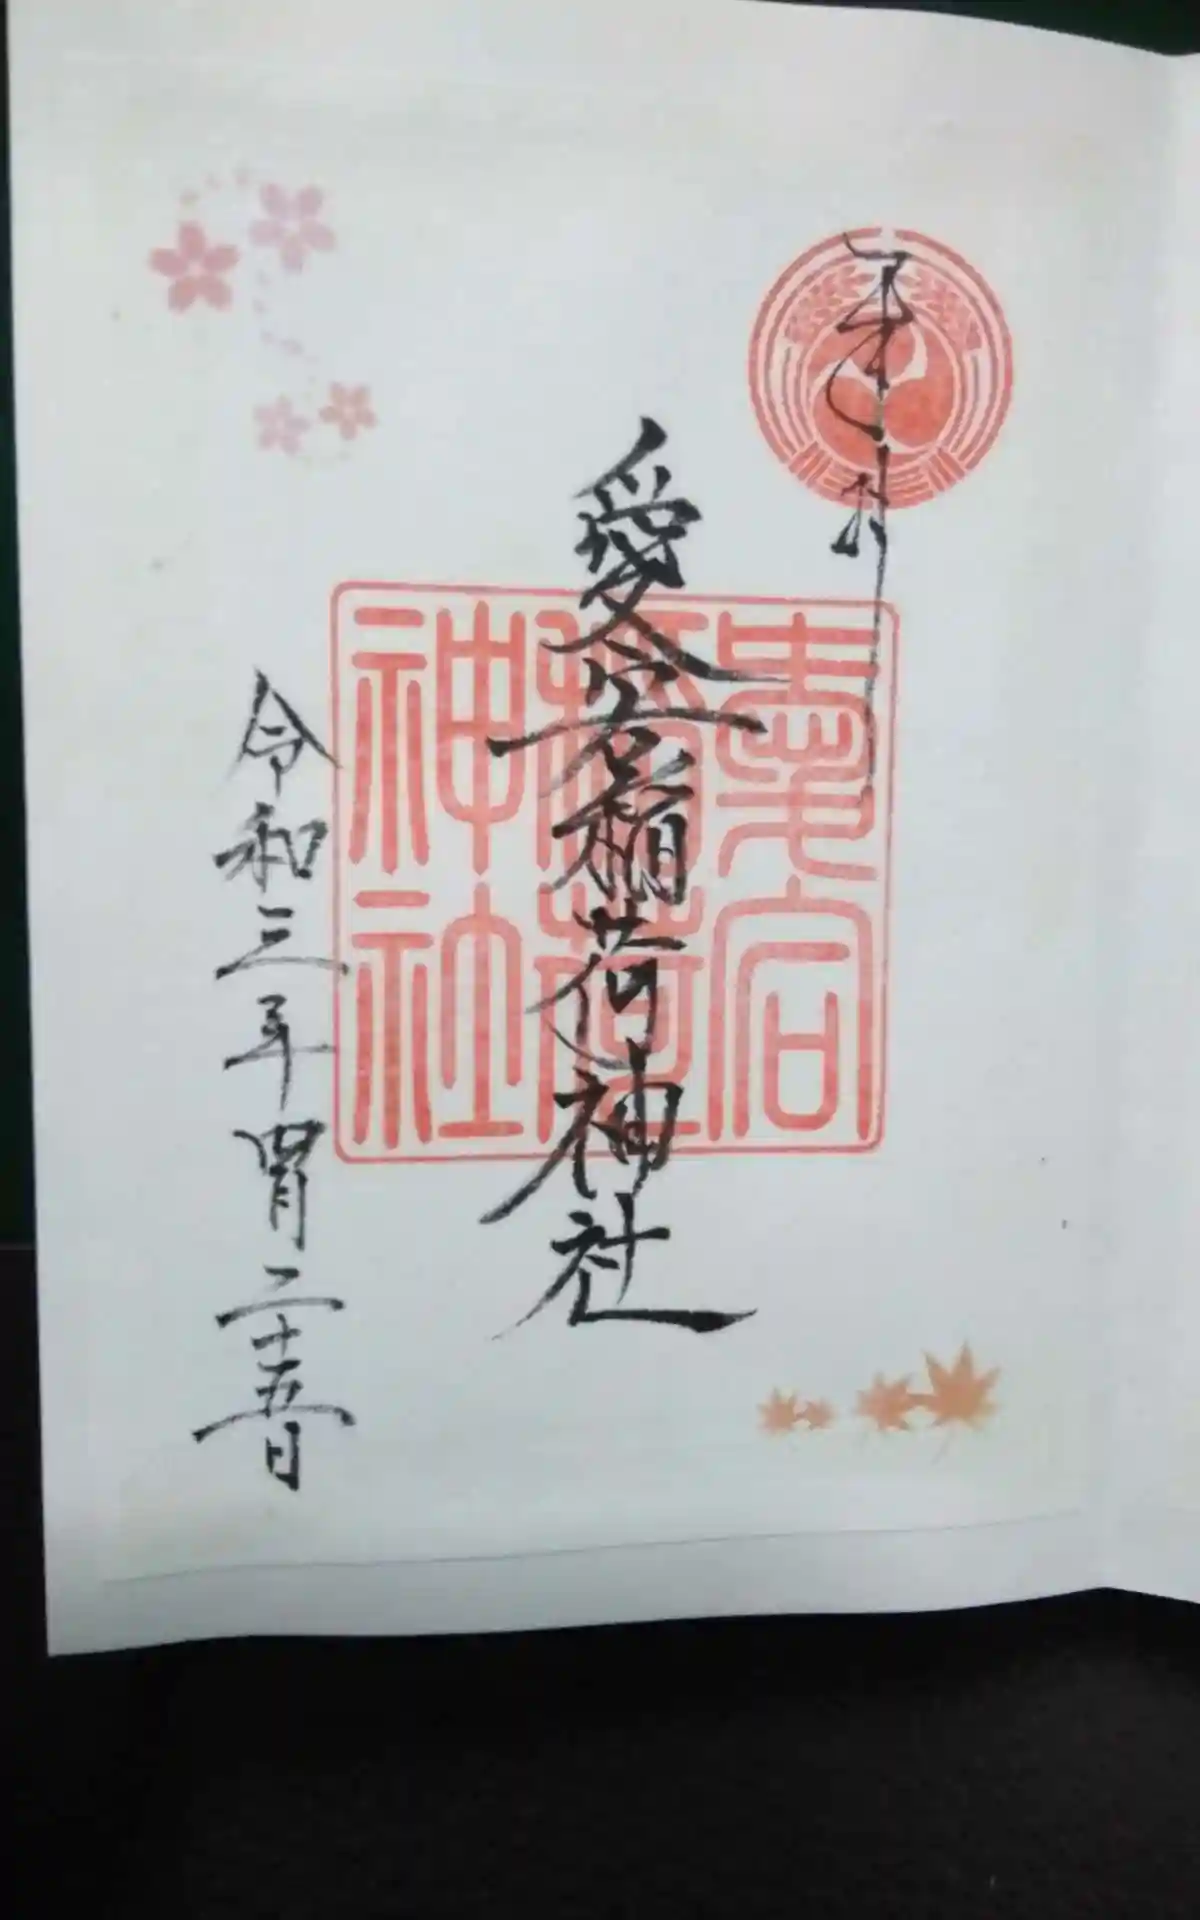 奉拝
愛宕稲荷神社
令和三年四月二十五日
愛宕
稲荷
神社